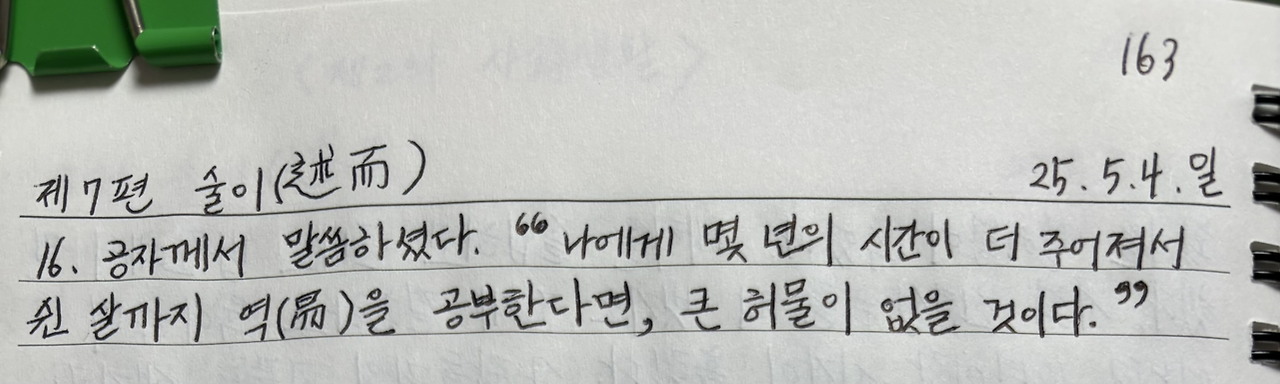 163
제7편 술이(述而) 25.5.4.일
16. 공자께서 말씀하셨다. “나에게 몇 년의 시간이 더 주어져서
쉰 살까지 역(易)을 공부한다면, 큰 허물이 없을 것이다.”